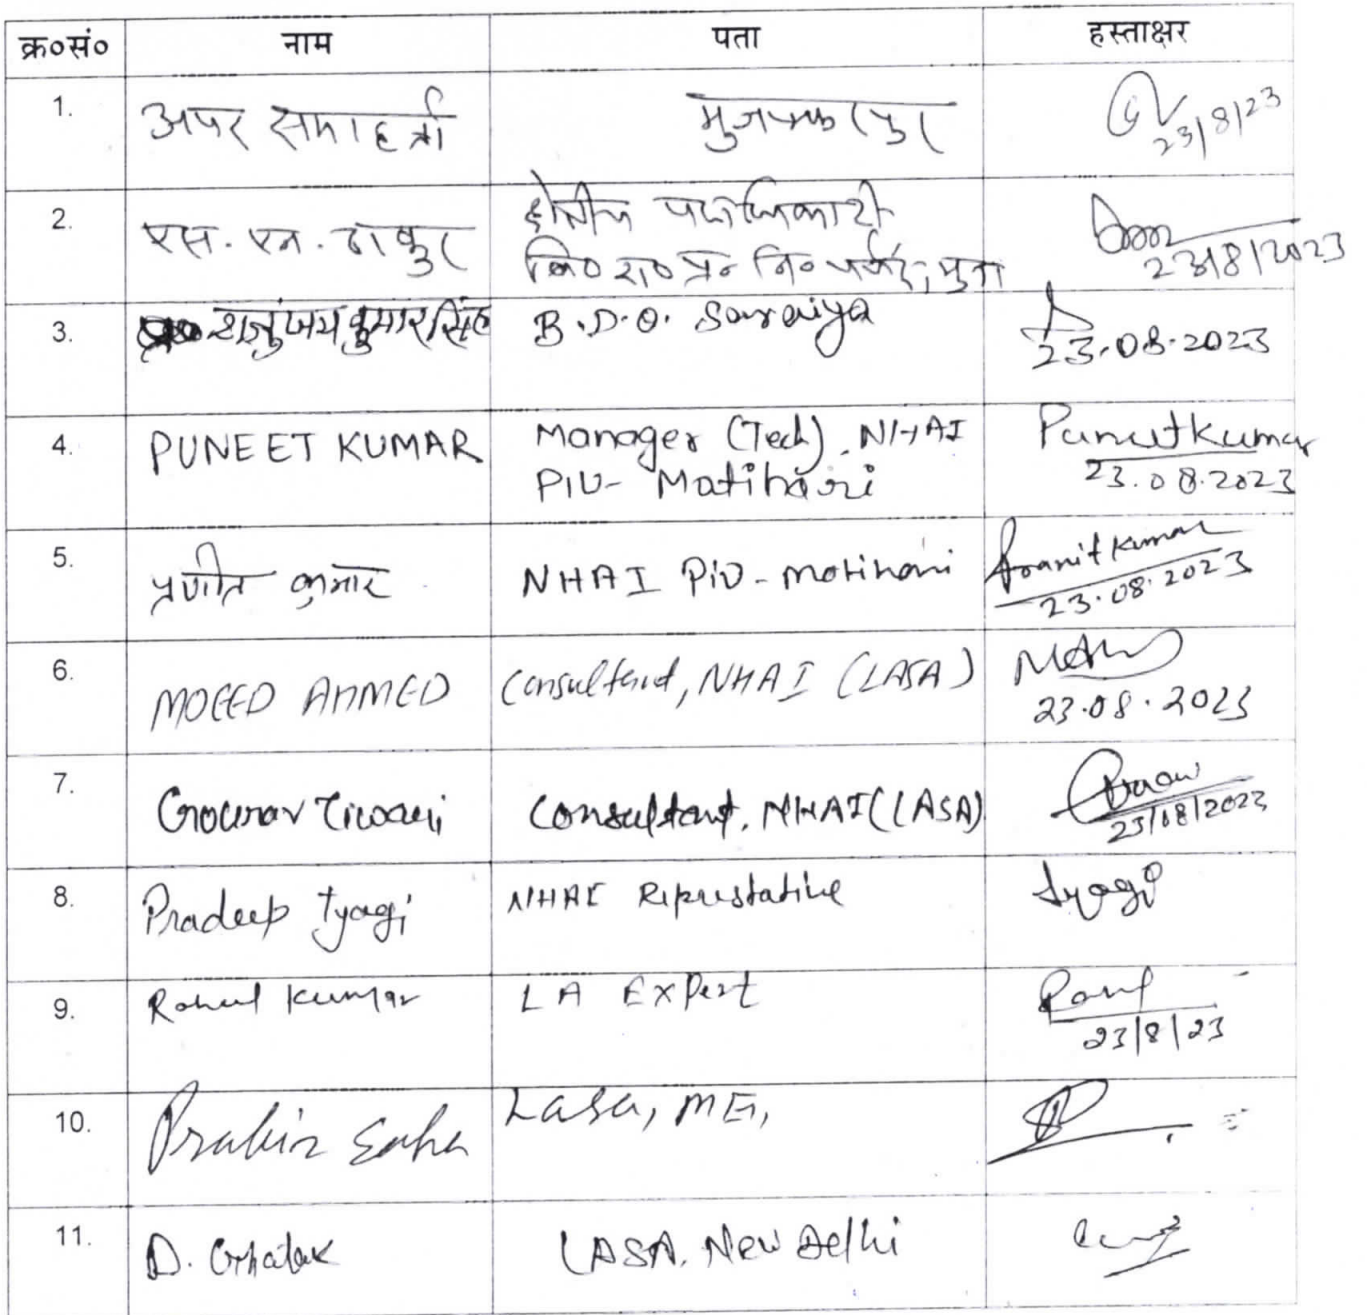 क्र०सं० नाम पता हस्ताक्षर
1. अपर समाहर्ता मुजफ्फरपुर 23/8/23
2. एस. एन. ठाकुर क्षेत्रीय पदाधिकारी
23/8/2023
3. शत्रुंजय कुमार सिंह B.D.O. Saraiya
23.08.2023
4. PUNEET KUMAR Manager (Tech) NHAI Puneet Kumar
PIU- Motihari 23.08.2023
5. प्रणीत कुमार NHAI PIU - Motihari Pranit Kumar
23.08.2023
6. MOEED AHMED Consultant, NHAI (LASA)
23.08.2023
7. Gourav Tiwari Consultant, NHAI (LASA)
23/08/2023
8. Pradeep Tyagi NHAI Tyagi
9. Rahul Kumar LA Expert
23/8/23
10. Prabir Saha Lasa,
11. D. Ghatak LASA, New Delhi